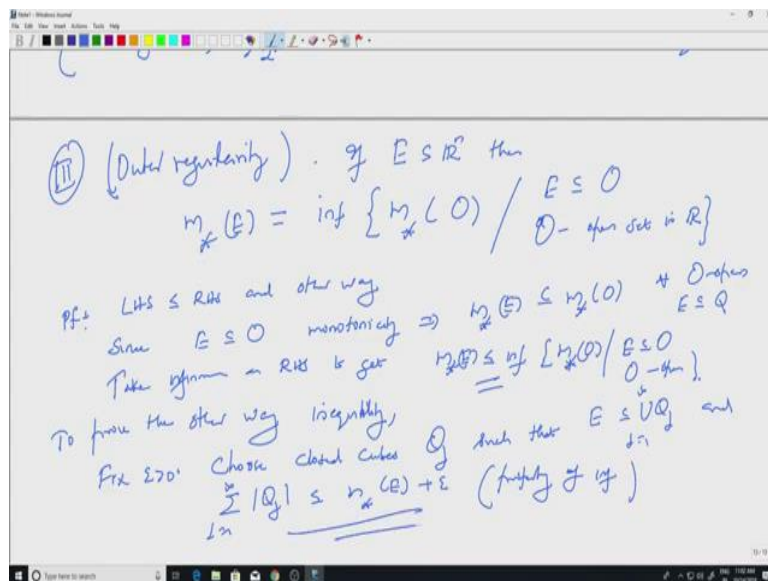 Note1 - Windows Journal
File Edit View Insert Actions Tools Help
III (Outer regularity). If E ⊆ ℝⁿ then
m_*(E) = inf { m_*(O) / E ⊆ O
O - open set in ℝ }
Pf: LHS ≤ RHS and other way
Since E ⊆ O monotonicity ⇒ m_*(E) ≤ m_*(O) ∀ O-open
E ⊆ O
Take infimum on RHS to get m_*(E) ≤ inf { m_*(O) / E ⊆ O
O - open }.
To prove the other way inequality,
Fix ε>0. Choose closed cubes Q_j such that E ⊆ ∪_{j=1}^∞ Q_j and
∑_{j=1}^∞ |Q_j| ≤ m_*(E) + ε (property of inf)
Type here to search